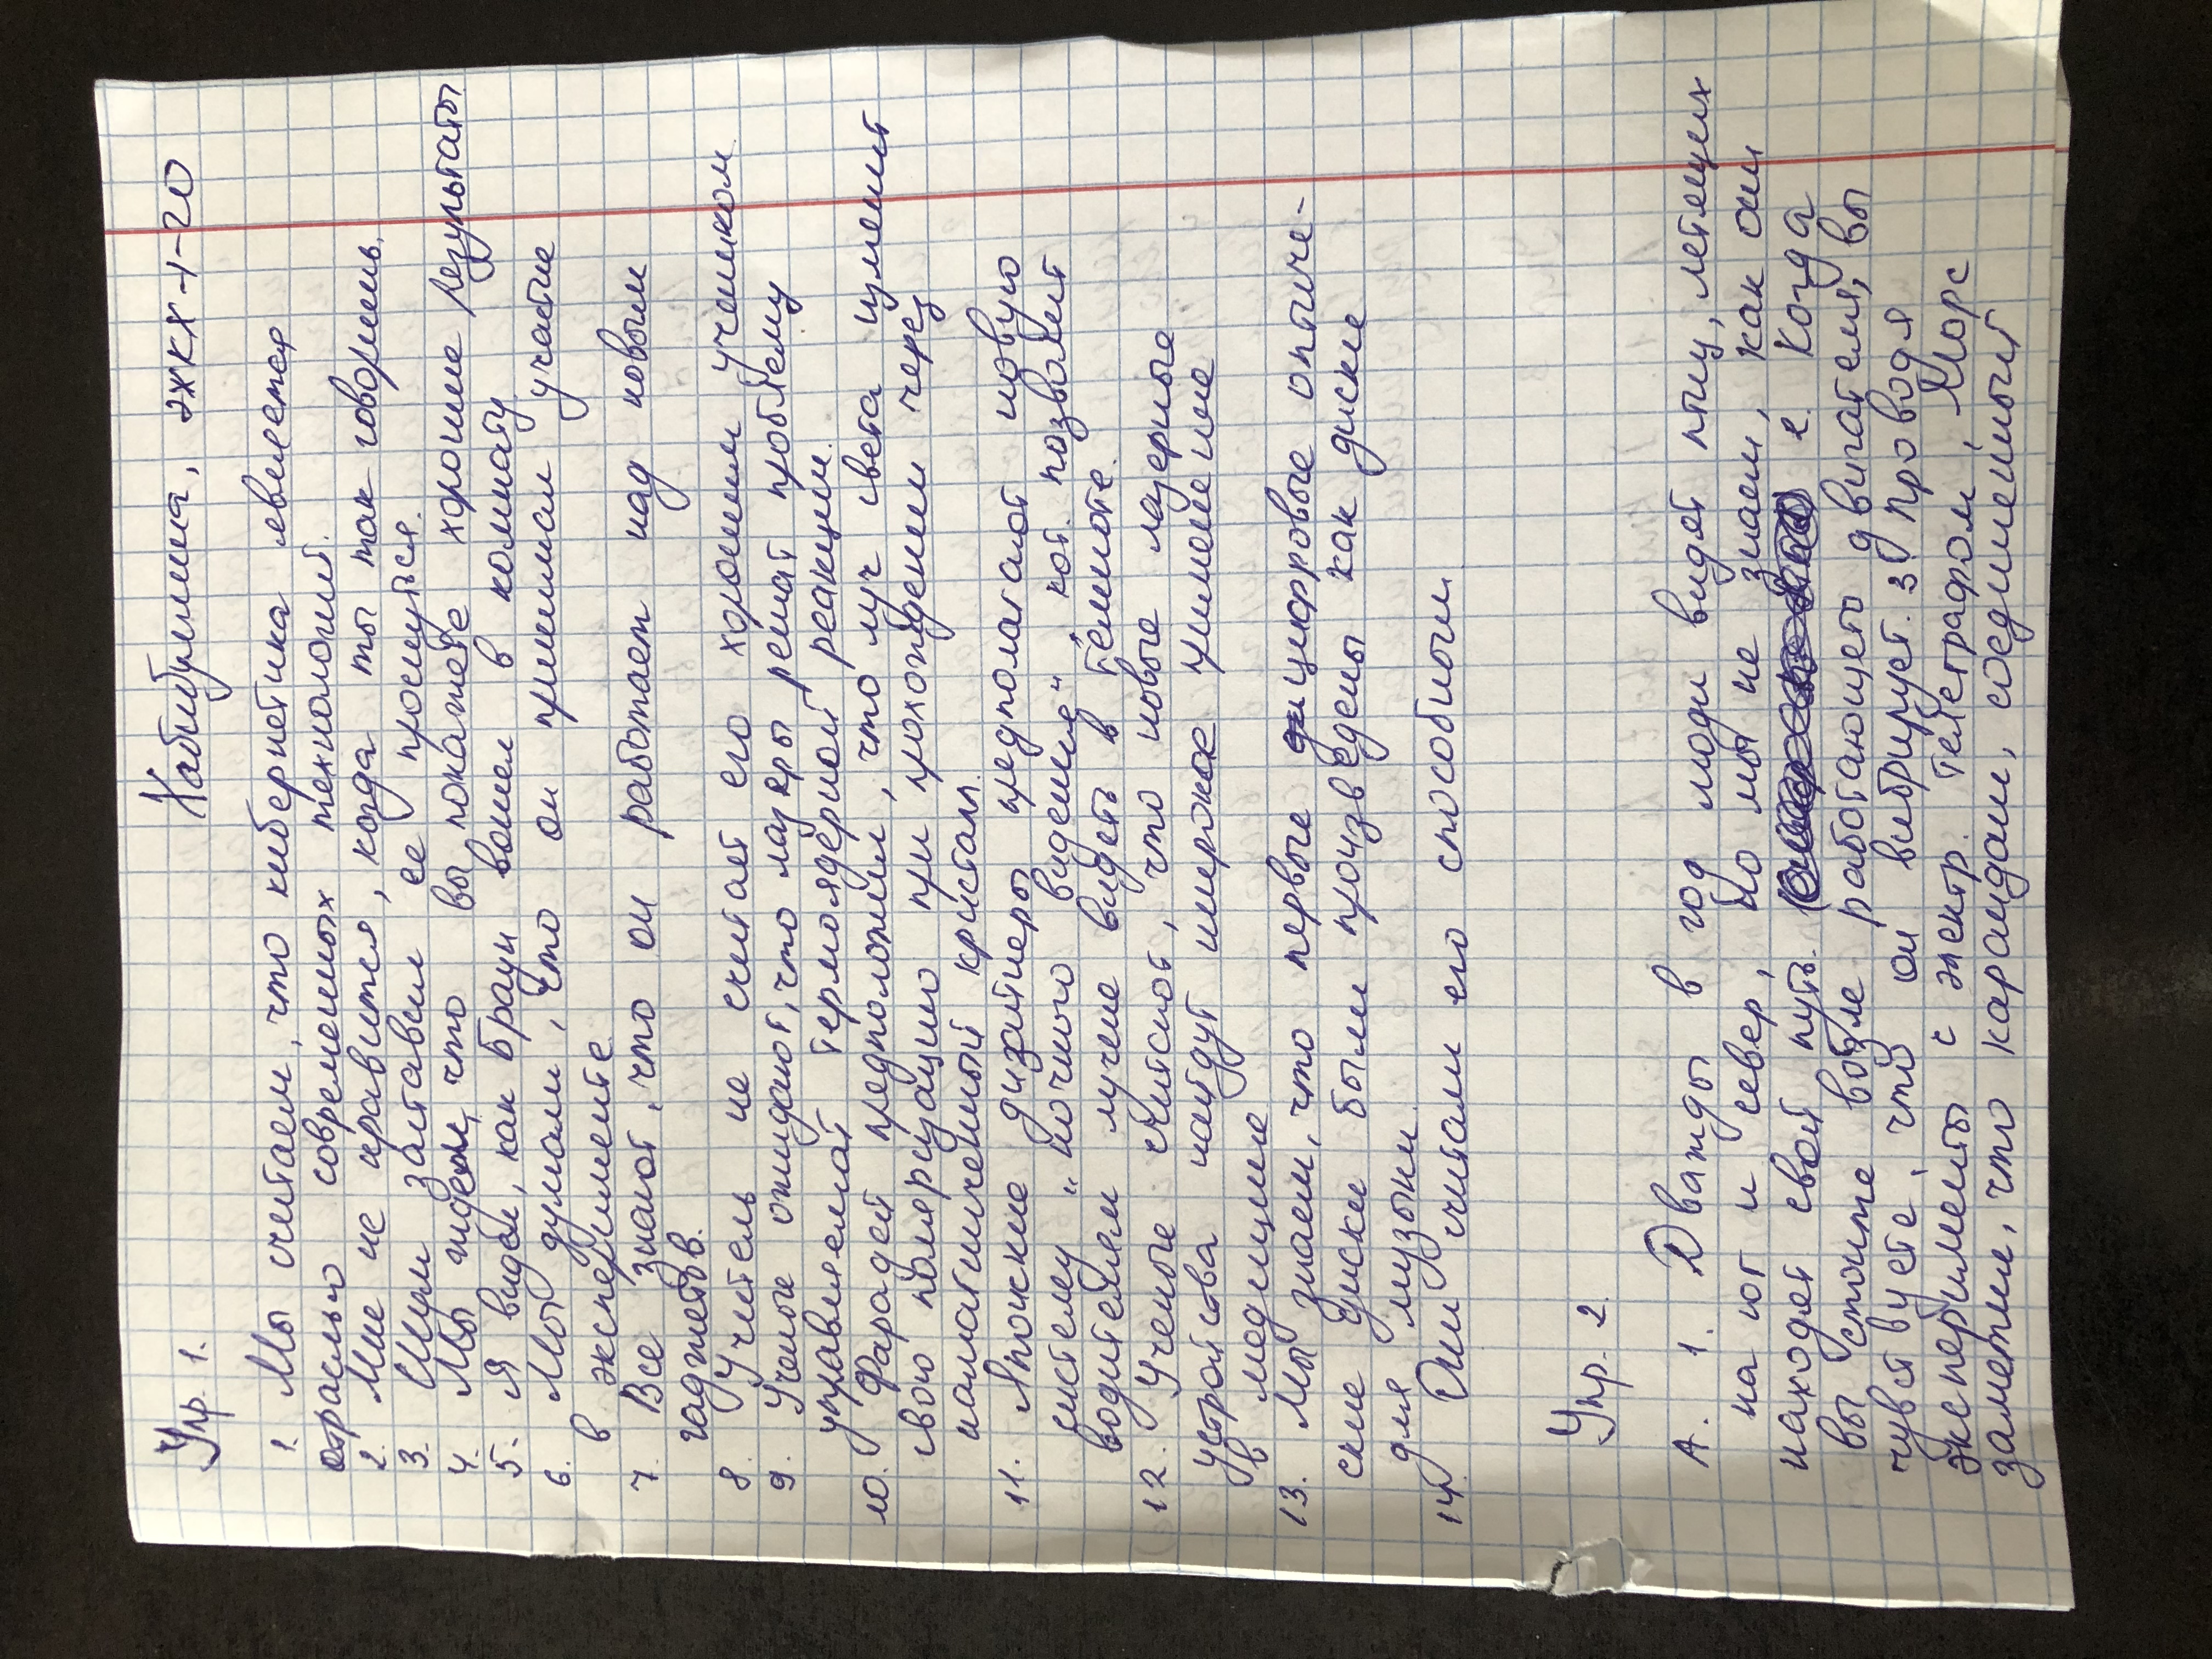 Упр. 1.
Хабибуллина, ЭЖКХ-1-20
1. Мы считаем, что кибернетика является
отраслью современных технологий.
2. Мне не нравится, когда ты так говоришь.
3. Шум заставил ее проснуться.
4. Мы ждем, что вы покажете хорошие результаты
5. Я видел, как Браун вошел в комнату.
6. Мы думали, что он принимал участие
в эксперименте.
7. Все знают, что он работает над новым
гаджетов.
8. Учитель не считает его хорошим учеником.
9. Ученые ожидают, что лазеры решат проблему
управляемой термоядерной реакции.
10. Фарадей предположил, что луч света изменит
свою поляризацию при прохождении через
намагниченный кристалл.
11. Японские дизайнеры предполагают новую
систему „ночного видения", кот. позволит
водителям лучше видеть в темноте.
12. Ученые считают, что новые лазерные
устройства найдут широкое применение
в медицине
13. Мы знаем, что первые цифровые оптиче-
ские диски были произведены как диски
для музыки.
14. Они считали его способным
Упр. 2.
А. 1. Дважды в год люди видят птиц, летящих
на юг и север, но мы не знаем, как они
находят свой путь. 2. Когда
вы стоите возле работающего двигателя, вы
чувствуете, что он вибрирует. 3. Проводя
эксперименты с электр. телеграфом, Морс
заметил, что карандаш, соединенный